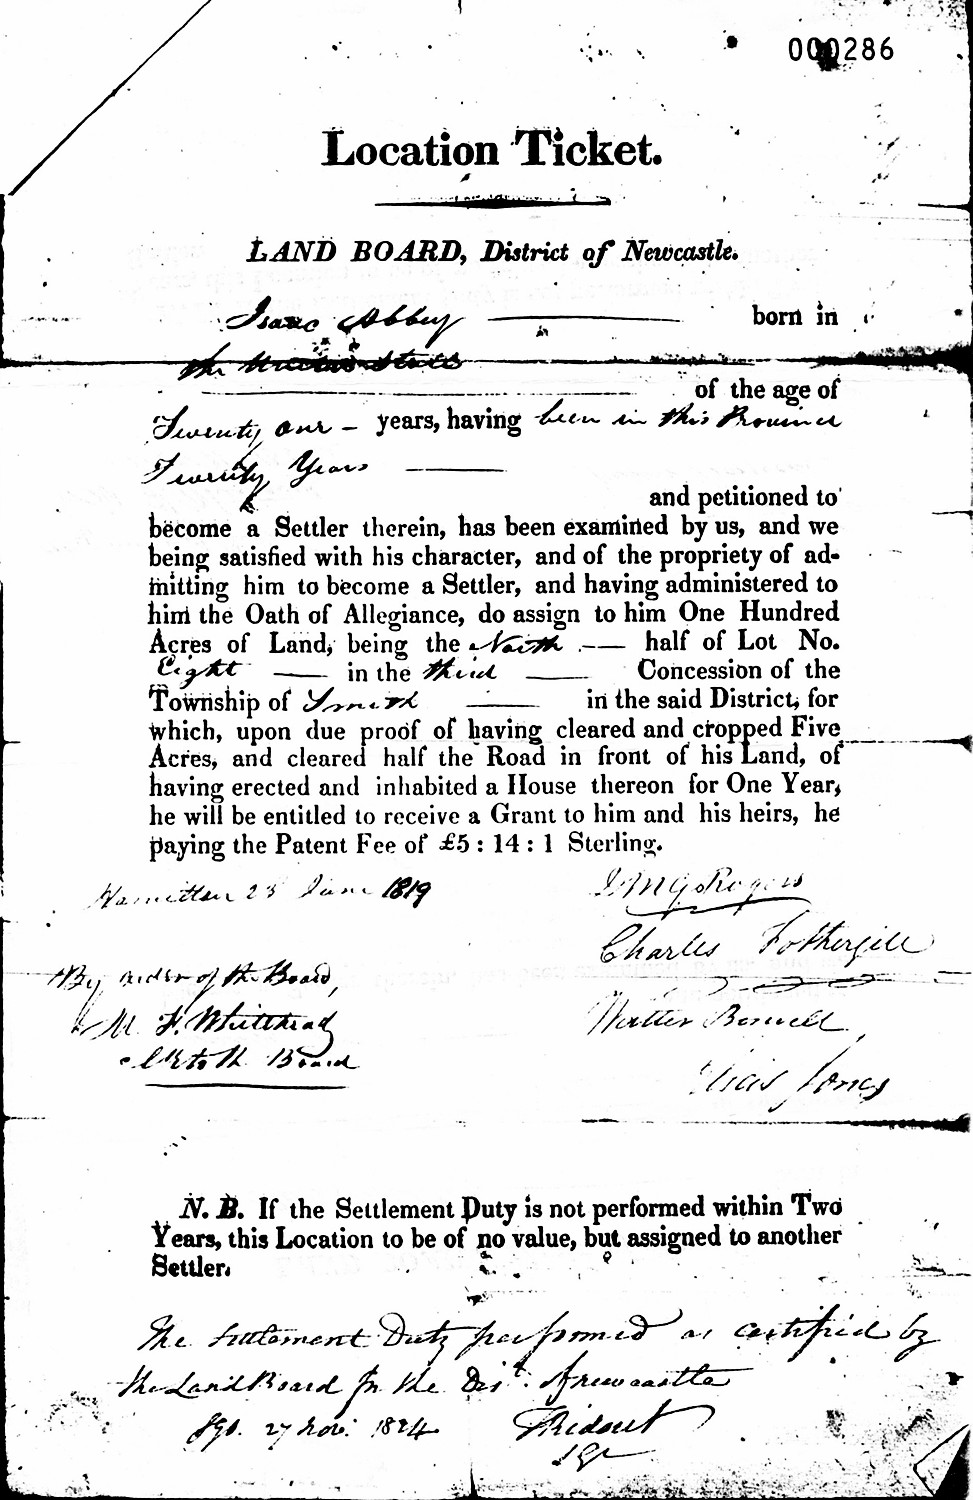 000286
Location Ticket.
LAND BOARD, District of Newcastle.
Isaac Abbey born in
the United States
of the age of
Twenty one – years, having been in this Province
Twenty Years
and petitioned to
become a Settler therein, has been examined by us, and we
being satisfied with his character, and of the propriety of ad-
mitting him to become a Settler, and having administered to
him the Oath of Allegiance, do assign to him One Hundred
Acres of Land, being the North half of Lot No.
Eight in the third Concession of the
Township of Smith in the said District, for
which, upon due proof of having cleared and cropped Five
Acres, and cleared half the Road in front of his Land, of
having erected and inhabited a House thereon for One Year,
he will be entitled to receive a Grant to him and his heirs, he
paying the Patent Fee of £5 : 14 : 1 Sterling.
Hamilton 23 June 1819
Rogers
Charles Fothergill
By order of the Board,
M. F. Whitehead
Clk to the Board
Walter Boswell
Elias Jones
N. B. If the Settlement Duty is not performed within Two
Years, this Location to be of no value, but assigned to another
Settler.
The Settlement Duty performed as certified by
the Land Board for the Dist. of Newcastle
SGO. 27 Nov. 1824 TRidout
SG